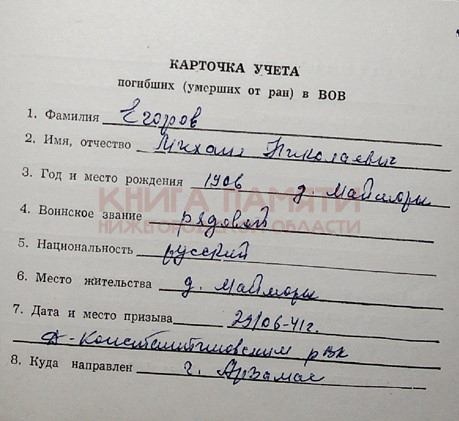 КАРТОЧКА УЧЕТА
погибших (умерших от ран) в ВОВ
1. Фамилия Егоров
2. Имя, отчество Михаил Николаевич
3. Год и место рождения 1906 д. Майморы
КНИГА ПАМЯТИ
НИЖЕГОРОДСКОЙ ОБЛАСТИ
4. Воинское звание рядовой
5. Национальность русский
6. Место жительства д. Майморы
7. Дата и место призыва 29/06-41г.
Д-Константиновским рвк
8. Куда направлен г. Арзамас